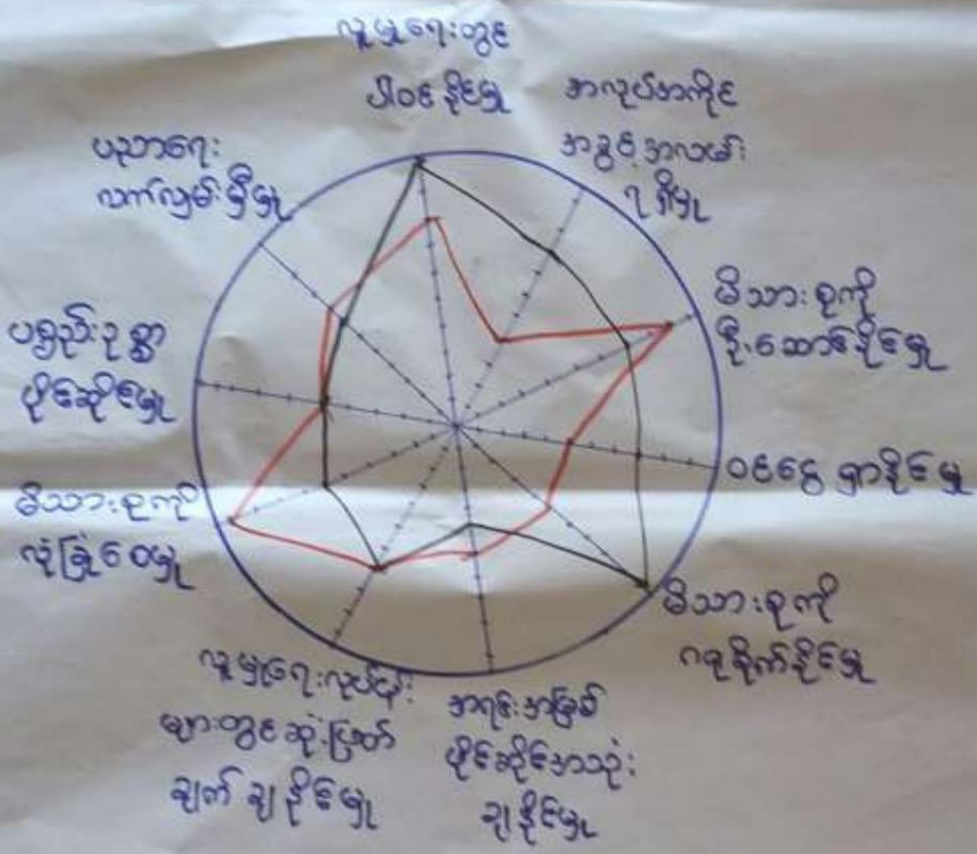 လူမှုရေးတွင်
ပါဝင်နိုင်မှု
အလုပ်အကိုင်
အခွင့်အလမ်း
ရရှိမှု
မိသားစုကို
ဦးဆောင်နိုင်မှု
ဝင်ငွေရှာနိုင်မှု
မိသားစုကို
ဂရုစိုက်နိုင်မှု
အရင်းအမြစ်
ပိုင်ဆိုင်အသုံး
ချနိုင်မှု
လူမှုရေးလုပ်ငန်း
များတွင်ဆုံးဖြတ်
ချက်ချနိုင်မှု
မိသားစုကို
လုံခြုံစေမှု
ပစ္စည်းဥစ္စာ
ပိုင်ဆိုင်မှု
ပညာရေး
လက်လှမ်းမှီမှု